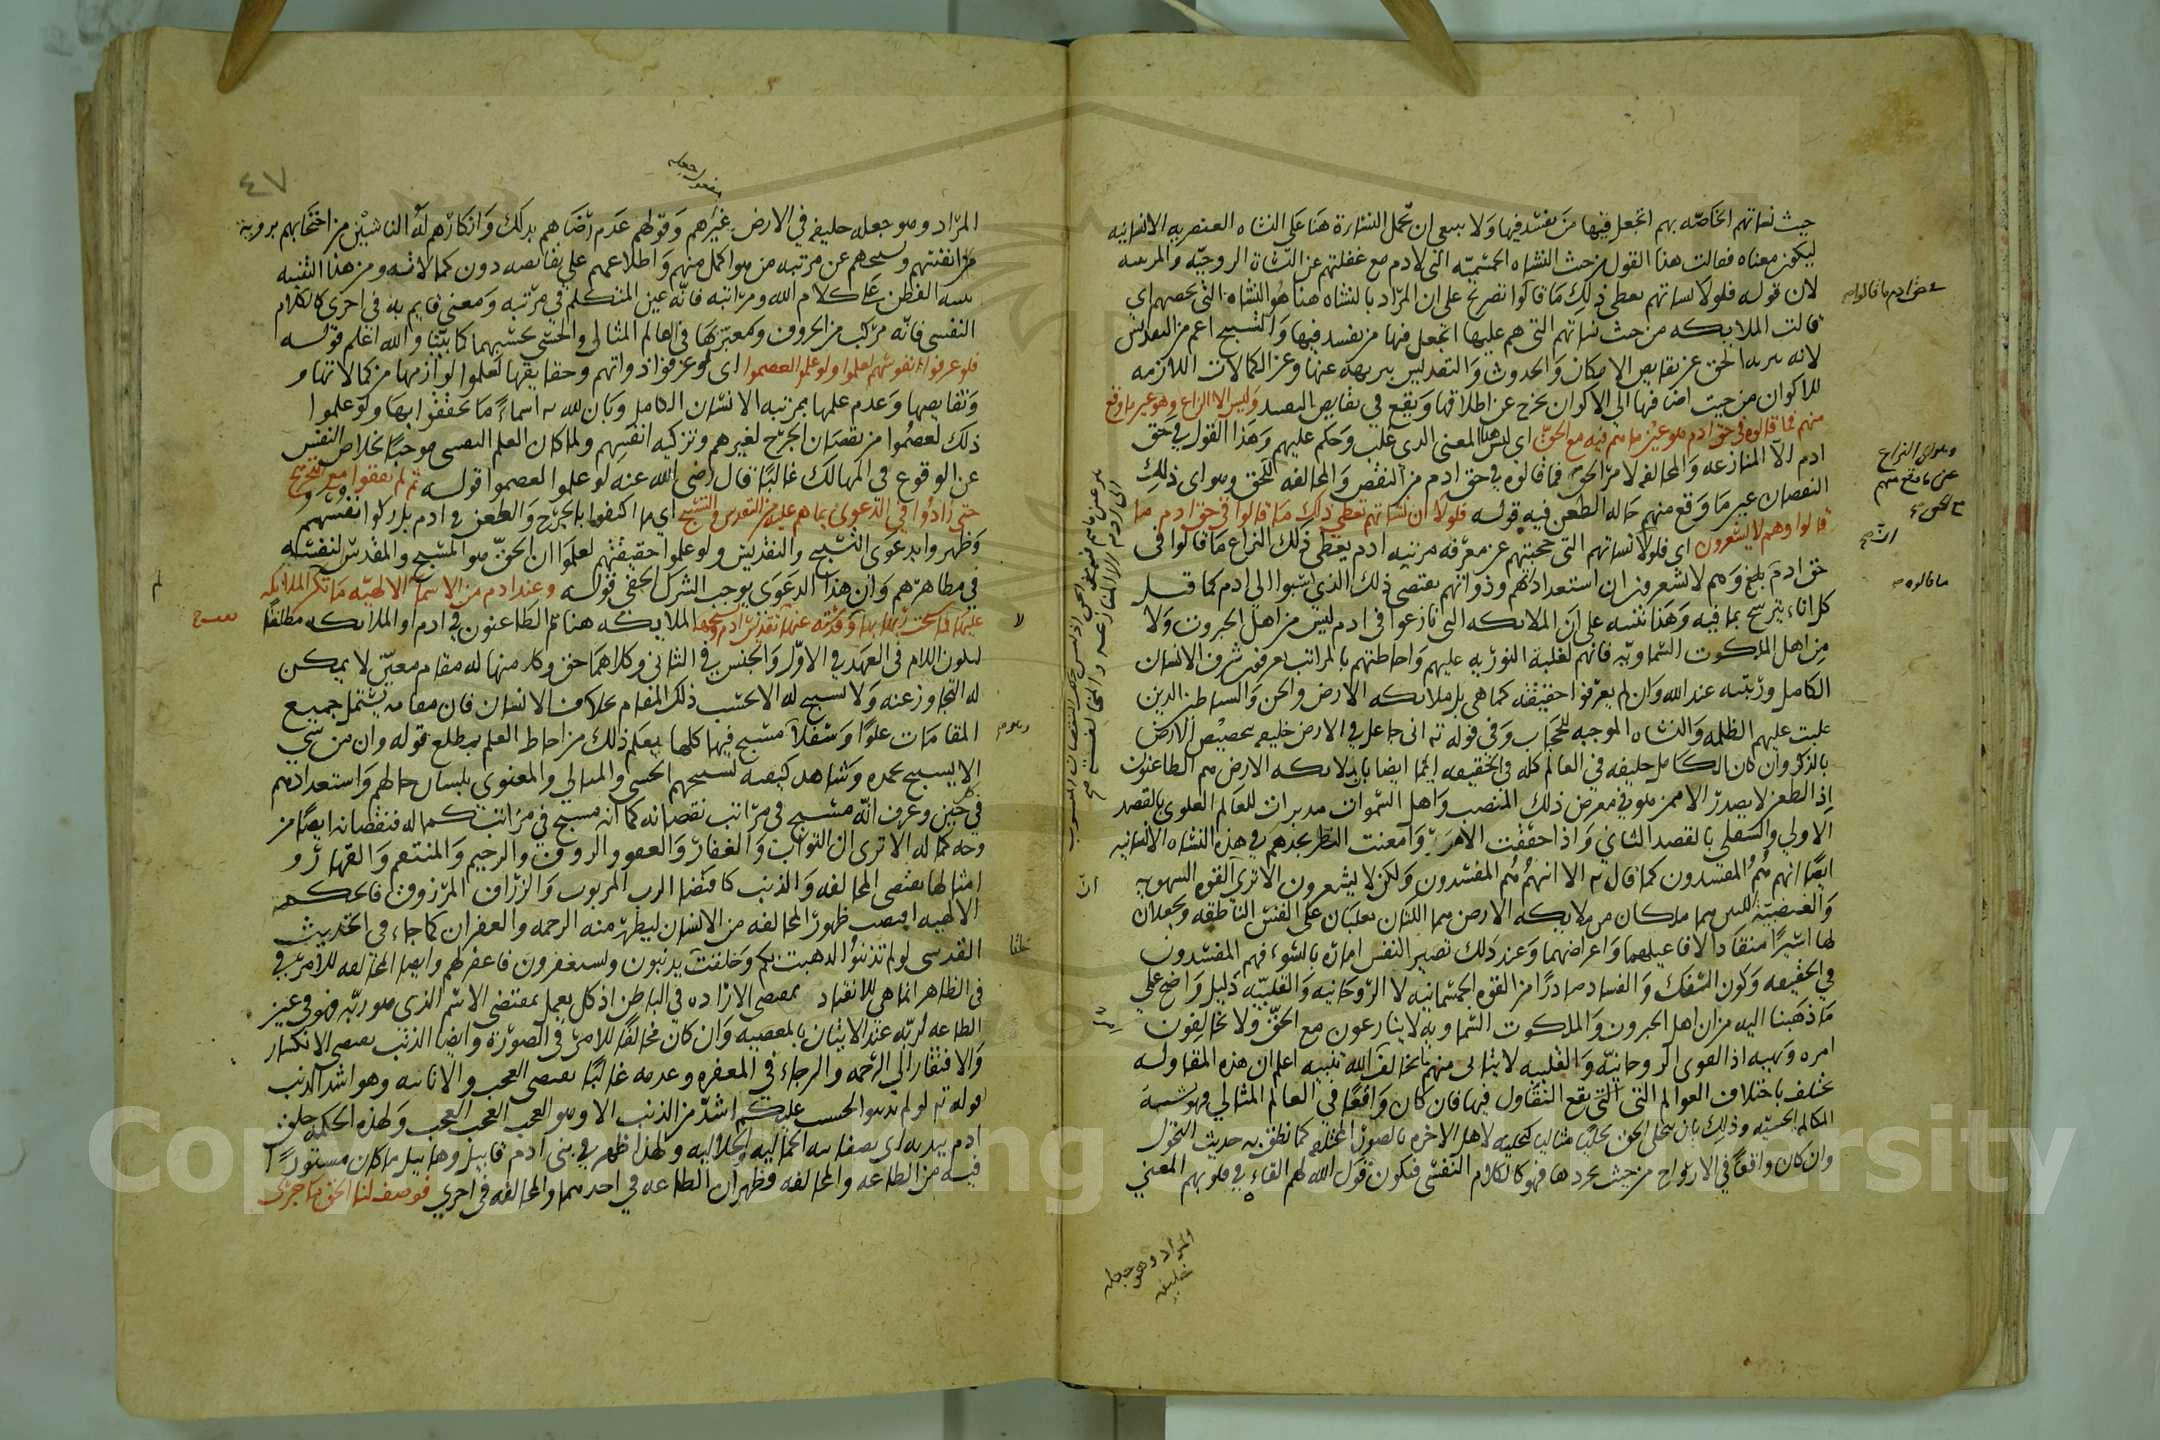 حيث نشاتهم الخاصه بهم اتجعل فيها من يفسد فيها ولا ينبغي ان تحمل النشاة هنا على النشاه العنصريه الانسانيه
ليكون معناه فقالت هذا القول من حيث النشاه الجسميه التي لادم مع غفلتهم عن النشاة الروحيه والمرتبيه
لان قوله فلولا نشاتهم تعطي ذلك ما قالوا تصريح على ان المراد بالنشاه هنا هو النشاه التي تخصهم اي
قالت الملايكه من حيث نشاتهم التي هم عليها اتجعل فيها من يفسد فيها والتسبيح اعم من التقديس
لانه تنزيه الحق عن نقايص الامكان والحدوث والتقديس تنزيهه عنها وعن الكمالات اللازمه
للاكوان من حيث اضافها الى الاكوان تخرج عن اطلاقها وتقع في نقايص التقييد وليس الا النزاع وهو عين ما وقع
منهم فما قالوه في حق ادم هو عين ما هم فيه مع الحق اي ليس هذا المعنى الذي غلب وحكم عليهم وهذا القول في حق
ادم الا المنازعه والمخالفه لامر الحق فما قالوه في حق ادم من النقص والمخالفه للحق وهو اي ذلك
النقصان عين ما وقع منهم حاله الطعن فيه قوله فلولا ان نشاتهم تعطي ذلك ما قالوا في حق ادم ما
قالوا وهم لا يشعرون اي فلولا نشاتهم التي حجبتهم عن معرفه مرتبه ادم يعطي ذلك النزاع ما قالوا في
حق ادم بلغ وهم لا يشعرون ان استعداداتهم وذواتهم يقتضي ذلك الذي نسبوا الى ادم كما قيل
كل اناء يترشح بما فيه وهذا تنبيه على ان الملائكه التي نازعوا في ادم ليس من اهل الجبروت ولا
من اهل الملكوت السماويه فانهم لغلبة النوريه عليهم واحاطتهم بالمراتب يعرفون شرف الانسان
الكامل ورتبته عند الله وان لم يعرفوا حقيقته كما هي بل ملائكه الارض والجن والشياطين الذين
غلبت عليهم الظلمه والنشاه الموجبه للحجاب وفي قوله ته اني جاعل في الارض خليفه بتخصيص الارض
بالذكر وان كان الكامل خليفه في العالم كله في الحقيقه ايما ايضا بان ملائكه الارض هم الطاعنون
اذ الطعن لا يصدر الا ممن هو في معرض ذلك المنصب واهل السموات مدبرات للعالم العلوي بالقصد
الاولي والسفلي بالقصد الثاني واذا حققت الامر وامعنت النظر تجدهم في هذه النشاه الانسانيه
ايضا انهم هم المفسدون كما قال ته الا انهم هم المفسدون ولكن لا يشعرون الا ترى القوه الشهويه
والغضبيه اللتين هما ملكان من ملائكه الارض هما اللتان تغلبان على النفس الناطقه ويجعلان
لها اسيرا منقادا لافاعيلهما واغراضهما وعند ذلك تصير النفس اماره بالسوء فهم المفسدون
في الحقيقه وكون السفك والفساد صادرا من القوه الجسمانيه لا الروحانيه والقلبيه دليل واضح على
ما ذهبنا اليه من ان اهل الجبروت والملكوت السماويه لا ينازعون مع الحق ولا يخالفون
امره ونهيه اذ القوى الروحانيه والقلبيه لا يتاتى منهم ما يخالف الله تنبيه اعلم ان هذه المقاوله
تختلف باختلاف العوالم التي يقع التقاول فيها فان كان واقعا في العالم المثالي فهو شبيه
المكالمه الحسيه وذلك بان يتجلى الحق تجليا مثاليا كتجليه لاهل الاخره بالصور المختلفه كما نطق به حديث التحول
وان كان واقعا في الارواح من حيث تجردها فهو كالكلام النفسي فيكون قول الله لهم القاءه في قلوبهم المعنى
في حق ادم ما قالوا صح
وهو اي النزاع
عين ما وقع منهم
مع الحق
ان صح
ما قالوه
المراد وهو جعله
خليفه
٤٧
المراد وهو جعله خليفه في الارض من غيرهم وقولهم عدم رضاهم بذلك وانكارهم له الناشئين من احتجابهم برويه
من انفسهم وتسبيحهم عن مرتبه من هو اكمل منهم واطلاعهم على نقايصه دون كمالاته ومن هذا التنبيه
يتنبه الفطن على كلام الله ومراتبه فانه عين المتكلم في مرتبه ومعنى قايم به في اخرى كالكلام
النفسي فانه مركب من الحروف ومعبر بها في العالم المثالي والحسي بحسبهما كما بينا والله اعلم قوله
فلو عرفوا نفوسهم لعلموا ولو علموا لعصموا اي لو عرفوا ذواتهم وحقايقها لعلموا لوازمها من كمالاتها و
ونقايصها وعدم علمها بمرتبه الانسان الكامل وبان لله ته اسماء ما تحققوا بها ولو علموا
ذلك لعصموا من نقصان الجرح لغيرهم وتزكيه انفسهم ولما كان العلم اليقيني موجبا لخلاص النفس
عن الوقوع في المهالك غالبا قال رضي الله عنه لو علموا لعصموا قوله ثم لم يقفوا مع التجريح
حتى زادوا في الدعوى بما هم عليه من التقديس والتسبيح اي ما اكتفوا بالجرح والطعن في ادم بل زكوا انفسهم
وظهروا بدعوى التسبيح والتقديس ولو علموا حقيقتهم لعلموا ان الحق هو المسبح والمقدس لنفسه
في مظاهرهم وان هذا الدعوى يوجب الشرك الخفي قوله وعند ادم من الاسما الالهيه ما لم تكن الملايكه
عليها فما سبحت ربها بها ولا قدسته عنها تقديس ادم وتسبيحه الملايكه هنا تم الطاعنون في ادم او الملائكه مطلقا
ليكون اللام في العهد في الاول والجنس في الثاني وكلاهما حق وكل منها له مقام معين لا يمكن
له التجاوز عنه ولا تسبيح له الا بحسب ذلك المقام بخلاف الانسان فان مقامه يشتمل جميع
المقامات علوا وسفلا وهو مسبح فيها كلها يعلم ذلك من احاط العلم بمطلع قوله وان من شي
الا يسبح بحمده وشاهد كيفيه تسبيحهم الحسي والمثالي والمعنوي بلسان حالهم واستعدادهم
في حين وعرف انه مسبح في مراتب نقصانه كما انه مسبح في مراتب كماله فنقصانه ايضا من
وجه كماله الا ترى ان التواب والغفار والعفو والروف والرحيم والمنتقم والقهار و
امثالها يقتضي المخالفه والذنب كاقتضاء الرب المربوب والرزاق المرزوق فالحكمه
الالهيه اقتضت ظهور المخالفه من الانسان ليظهر منه الرحمه والغفران كما جاء في الحديث
القدسي لو لم تذنبوا لذهبت بكم وخلقت خلقا يذنبون ويستغفرون فاغفر لهم وايضا المخالفه للامر في
في الظاهر انما هي للانقياد بمقتضى الاراده في الباطن اذ كل يعمل بمقتضى الاسم الذي هو ربه فهو في عين
الطاعه لربه عند الاتيان بالمعصيه وان كان مخالفا للامر في الصورة وايضا الذنب يقتضي الانكسار
والافتقار الى الرحمه والرجاء في المغفره وعدمه غالبا يقتضي العجب والانانيه وهو اشد الذنب
قوله ته لو لم تذنبوا لخشيت عليكم اشد من الذنب الا وهو العجب العجب العجب ولهذه الحكمه خلق
ادم بيديه اي بصفاته الجماليه والجلاليه ولهذا ظهر في بني ادم قابيل وهابيل ما كان مستورا
فيه من الطاعه والمخالفه فظهر ان الطاعه في احدهما والمخالفه في اخرى فوصف لنا الحق ما جرى
لا
وهو
خلقا